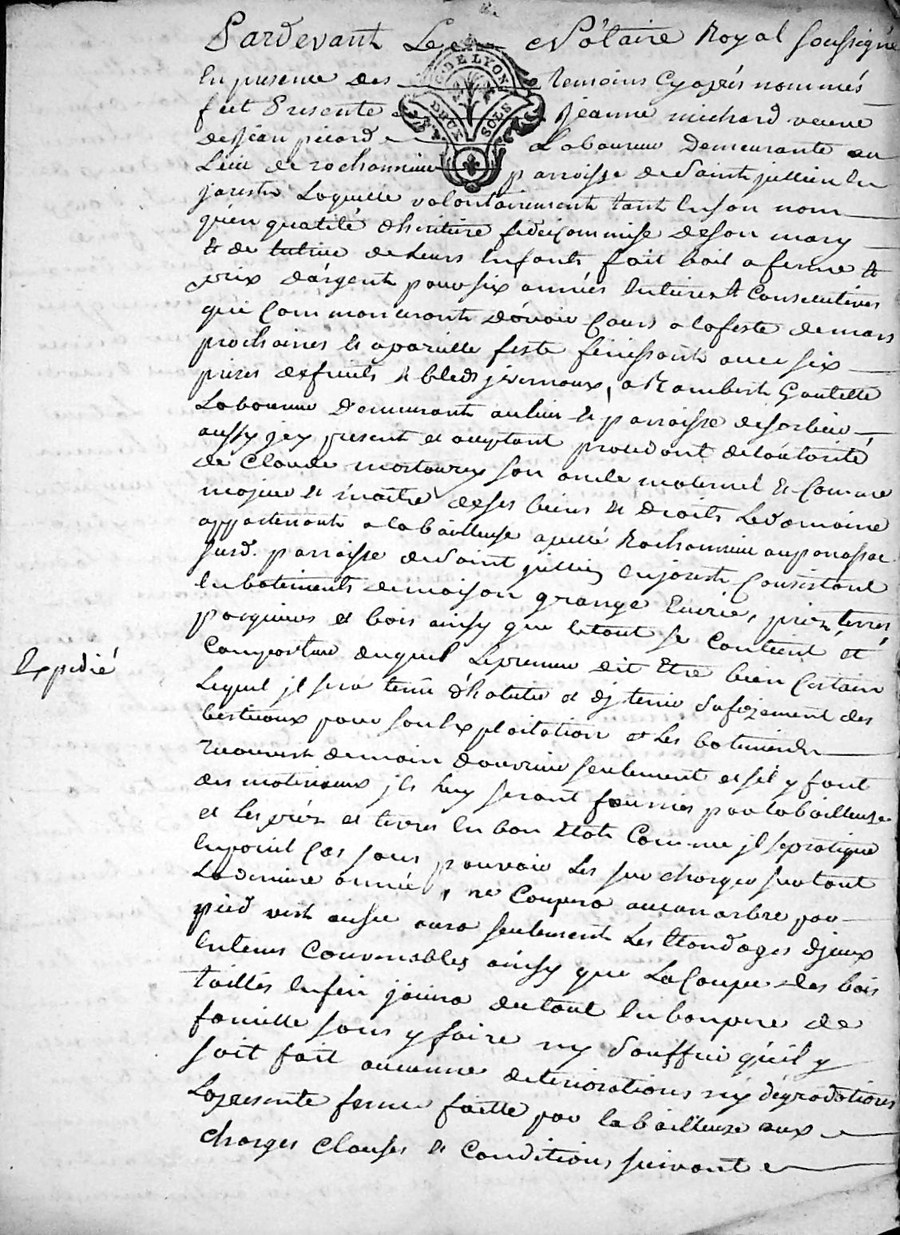 Pardevant Le Notaire Royal soussigné
En presence des temoins cy aprés nommés
fut Presente jeanne michard veuve
de jean picard Laboureur demeurante au
Lieu de rochonnieu parroisse de Saint jullien en
jarestz Laquelle volontairement tant en son nom
qu'en qualité d'heritiere fideicommise de son mary
& de tutrice de leurs Enfants fait bail a ferme &
prix d'argent pour six années Entieres & Consecutives
qui Commanceront d'avoir Cours a la feste de mars
prochaines et a pareille feste finissant avec six
prises de fruits & bleds jvernaux, a Rambert Goutelle
Laboureur Demeurant au lieu et parroisse de Sorbier
aussy icy present et acceptant procedant de l'autorité
de Claude son oncle maternel & Comme
majeur et maitre de ses biens & Droits Le domaine
appartenant a la bailleuse apellé Rochonnieu au
surd. parroisse de Saint jullien En jarestz Consistant
En batiments de maison grange Ecurie, prez, terres
pasquiers et bois ainsy que le tout se Contient et
Comporte duquel Le preneur dit Etre bien Certain
Expedié
Lequel jl sera tenu d'habiter et d'y tenir sufizement des
bestiaux pour son Exploitation et Les batiments
recouvrir de main d'ouvrier seulement et s'il y faut
des materiaux jls luy seront fournis par la bailleuse
et Les préz et terres En bon Etat Comme jl se pratique
En pareil Cas sans pouvoir Les sur charger surtout
La derniere année, ne Coupera aucun arbre par
pied vert aura seulement Les Etondages d'jceux
En tems Convenables ainsy que La Coupe des bois
taillés Enfin jouira du tout En bon pere de
famille sans y faire ny souffrir qu'il y
soit fait aucunne deteriorations ny dégradations
La presente ferme faitte par la bailleuse aux
Charges Clauses & Conditions suivante
C. DE LYON
DEUX SOLS